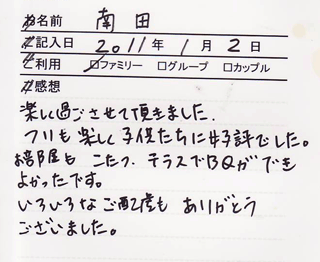 お名前 南田
ご記入日 2011年1月2日
ご利用 ☑ファミリー □グループ □カップル
ご感想
楽しく過ごさせて頂きました。
フリも楽しく子供たちに好評でした。
お部屋も こたつ、テラスでBQができ
よかったです。
いろいろなご配慮も ありがとう
ございました。